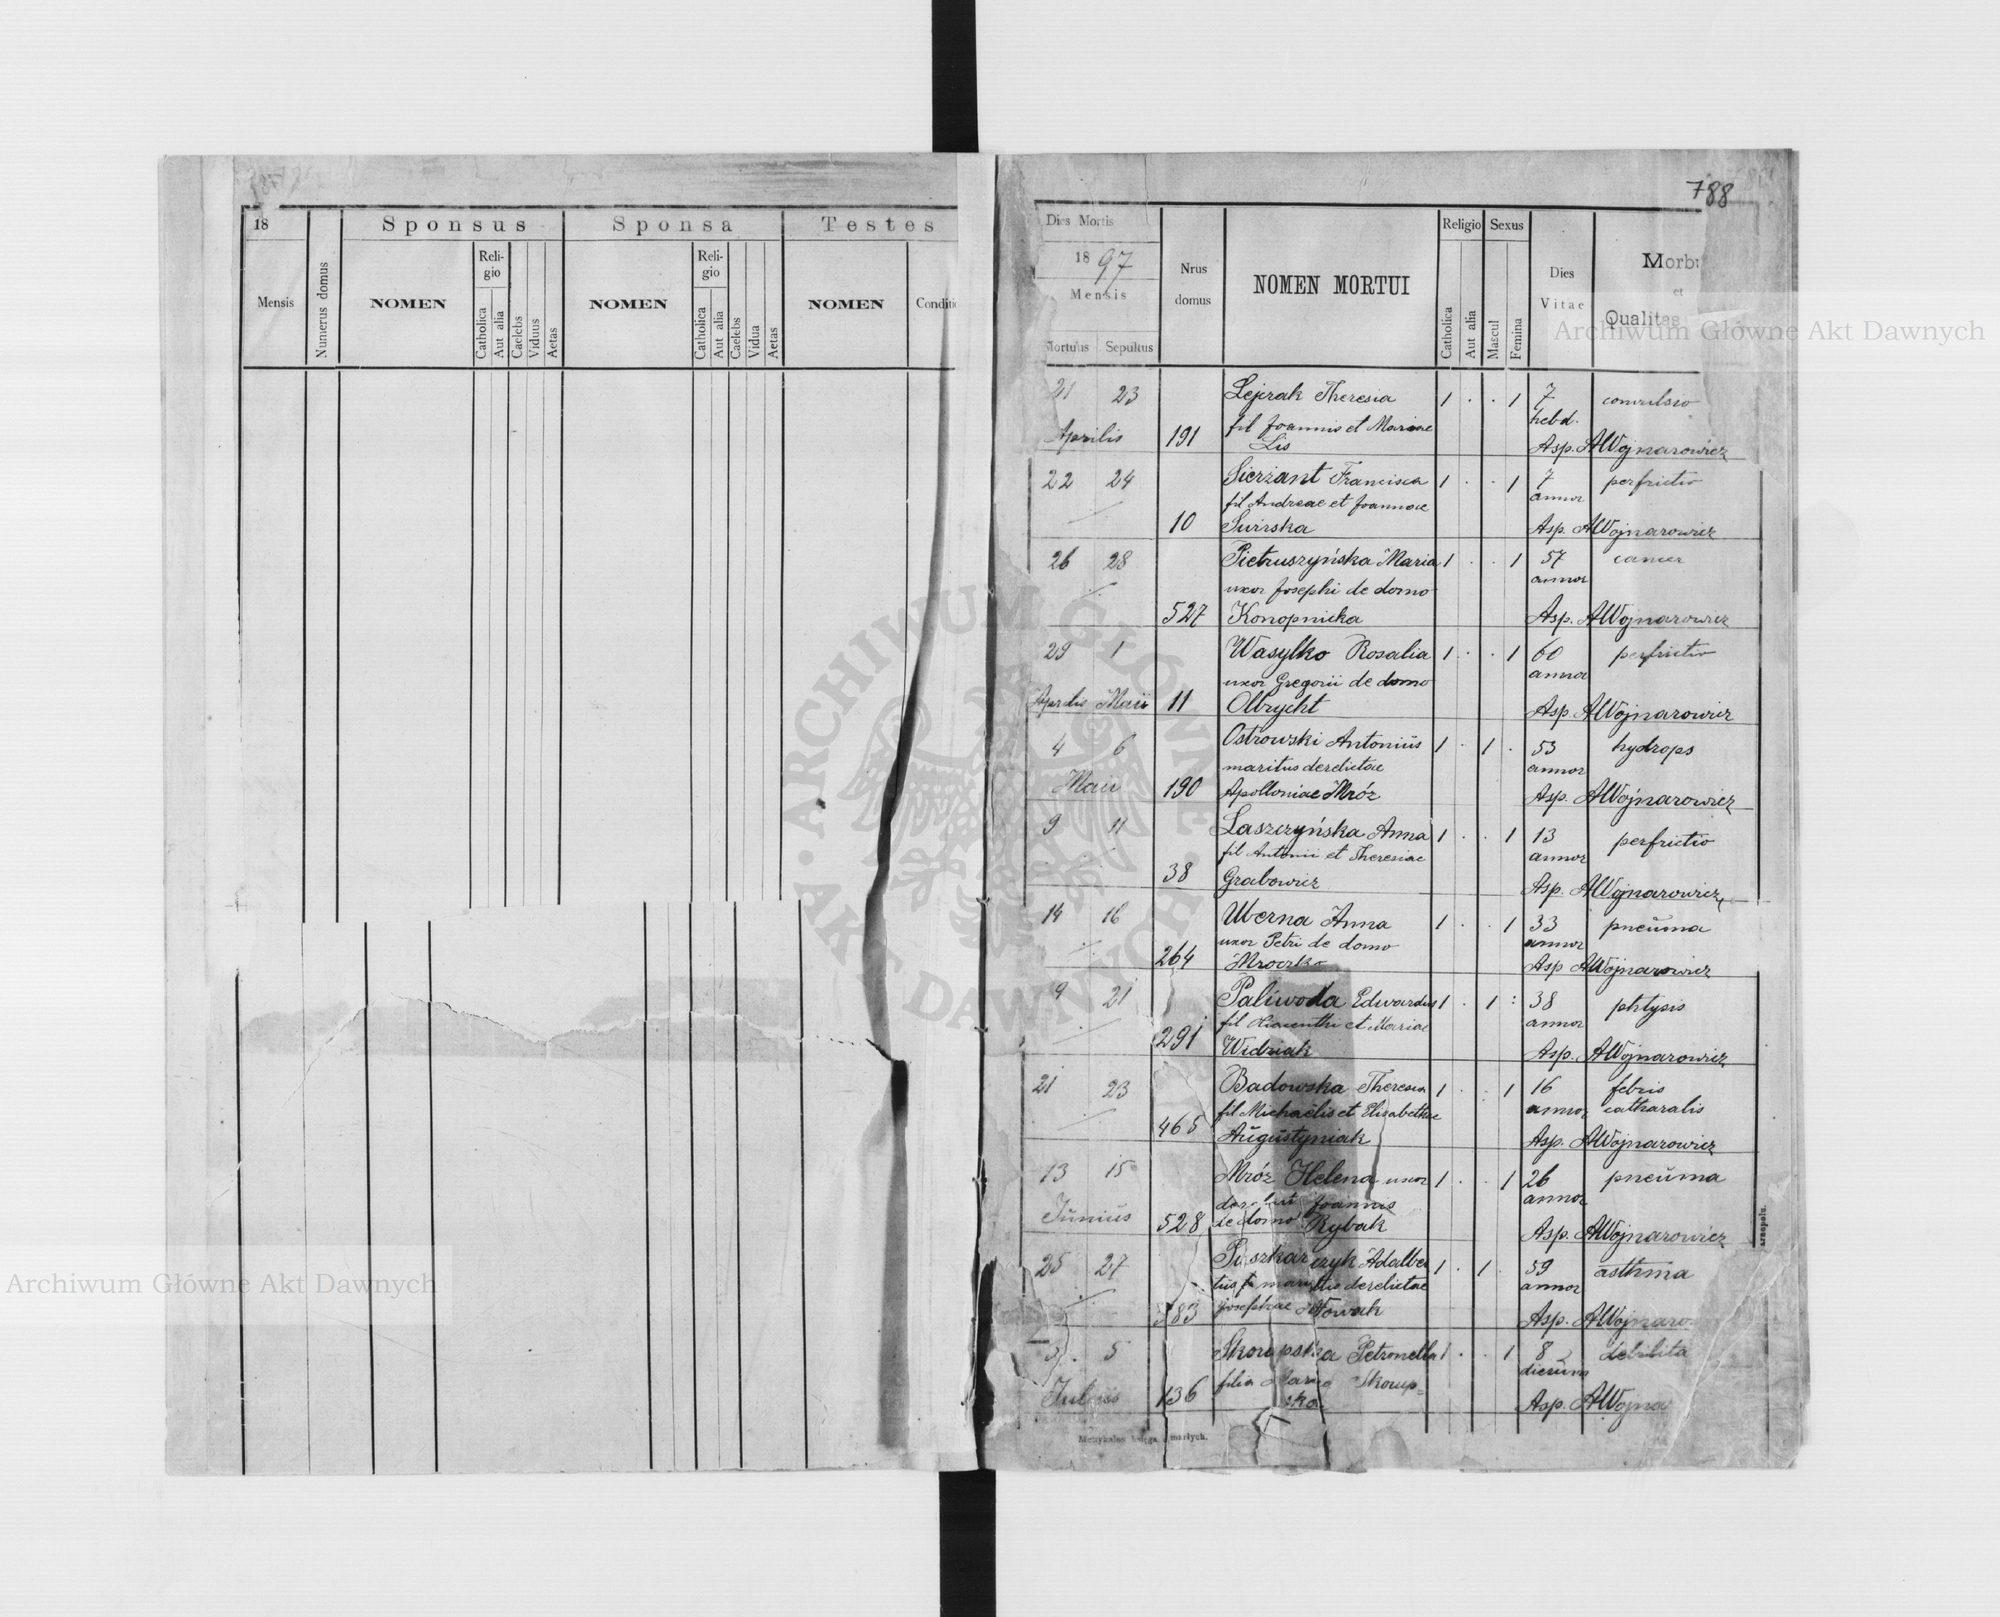 18
Sponsus
Sponsa
Testes
Mensis
Numerus domus
NOMEN
Reli-
gio
Catholica
Aut alia
Caelebs
Viduus
Aetas
NOMEN
Reli-
gio
Catholica
Aut alia
Caelebs
Vidua
Aetas
NOMEN
Conditi
788
Dies Mortis
1897
Mensis
Mortuus Sepultus
Nrus
domus
NOMEN MORTUI
Religio
Catholica
Aut alia
Sexus
Mascul
Femina
Dies
Vitae
Morbu
et
Qualitas
21 23 Lejzak Theresia 1 . . 1 7 convulsio
fil Joannis et Mariae hebd.
Aprilis 191 Lis Asp. AWojnarowicz
22 24 Sierżant Francisca 1 . . 1 7 perfrictio
fil Andreae et Joannae annor
10 Suirska Asp. AWojnarowicz
26 28 Pietruszyńska Maria 1 . . 1 57 cancer
uxor Josephi de domo annor
527 Konopnicka Asp. AWojnarowicz
29 1 Wasylko Rosalia 1 . . 1 60 perfrictio
uxor Gregorii de domo annor
Aprilis Maii 11 Olbrycht Asp. AWojnarowicz
4 6 Ostrowski Antonius 1 . 1 . 53 hydrops
maritus derelictae annor
Maii 190 Apolloniae Mróz Asp. AWojnarowicz
9 11 Laszczyńska Anna 1 . . 1 13 perfrictio
fil Antonii et Theresiae annor
38 Grabowicz Asp. AWojnarowicz
14 16 Uberna Anna 1 . . 1 33 pneŭma
uxor Petri de domo annor
264 Mroczko Asp AWojnarowicz
9 21 Paliwoda Edwardus 1 . 1 : 38 phtysis
fil Hiacenthi et Mariae annor
291 Widziak Asp. AWojnarowicz
21 23 Badowska Theresia 1 . . 1 16 febris
fil Michaëlis et Elisabethae annor catharalis
465 Aŭgŭstyniak Asp. AWojnarowicz
13 15 Mróz Helena uxor 1 . . 1 26 pneŭma
Joannis annor
Jŭniŭs 528 de domo Rybak Asp. AWojnarowicz
25 27 Puszkarczyk Adalber 1 . 1 59 asthma
tus maritus derelictae annor
583 Josephae Nowak Asp. AWojnaro
3 5 Skorupska Petronella 1 . . 1 8 debilita
filia Maria Skorup= dierŭm
Julius 136 ska Asp. AWojna
Metrykalna księga zmarłych.
Archiwum Główne Akt Dawnych
Archiwum Główne Akt Dawnych
ARCHIWUM GŁÓWNE AKT DAWNYCH